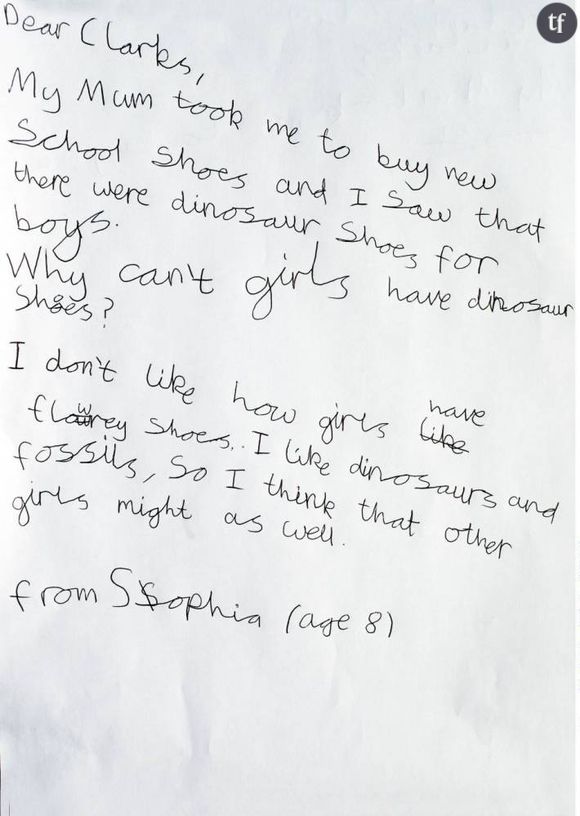 tf
Dear Clarks,
My Mum took me to buy new
School Shoes and I Saw that
there were dinosaur Shoes for
boys.
Why can't girls have dinosaur
Shoes?
I don't like how girls have
flowrey Shoes. I like dinosaurs and
fossils, So I think that other
girls might as well.
from Sophia (age 8)